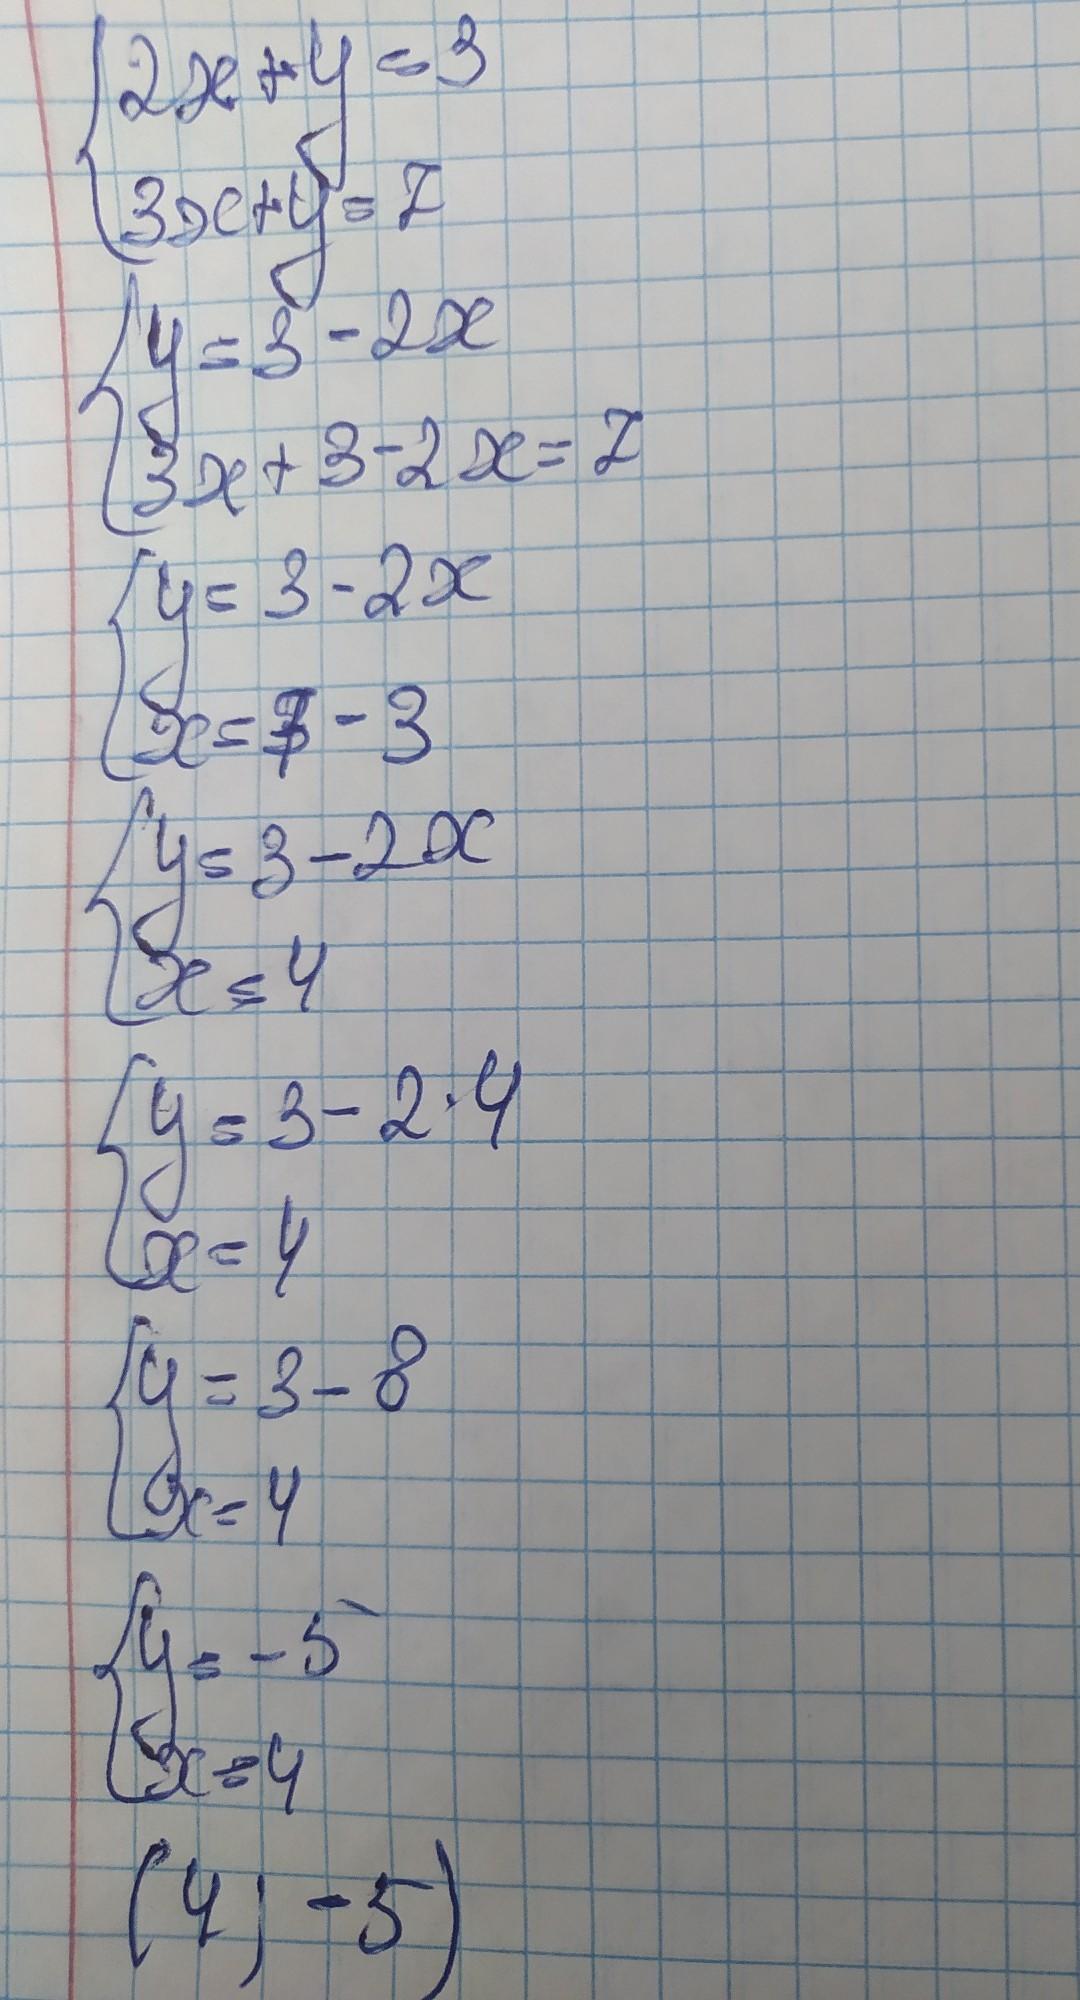 2x+y=3
3x+y=7
y=3-2x
3x+3-2x=7
y=3-2x
x=7-3
y=3-2x
x=4
y=3-2·4
x=4
y=3-8
x=4
y=-5
x=4
(4;-5)